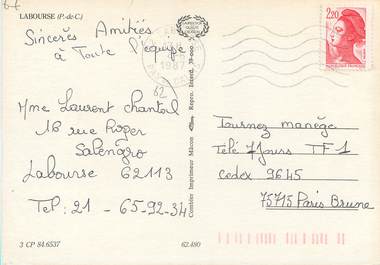 LABOURSE (P.-de-C.)
Sincères Amitiés
à Toute l'équipe
Mme Laurent Chantal
18 rue Roger
Salengro
Labourse 62113
Tel: 21 - 65-92-34
3 CP 84.6537
62.480
Combier Imprimeur Mâcon
Repro. Interd.
1987
62
2,20
Tournez manège
Télé 7 Jours TF1
Cedex 9645
75715 Paris Brune